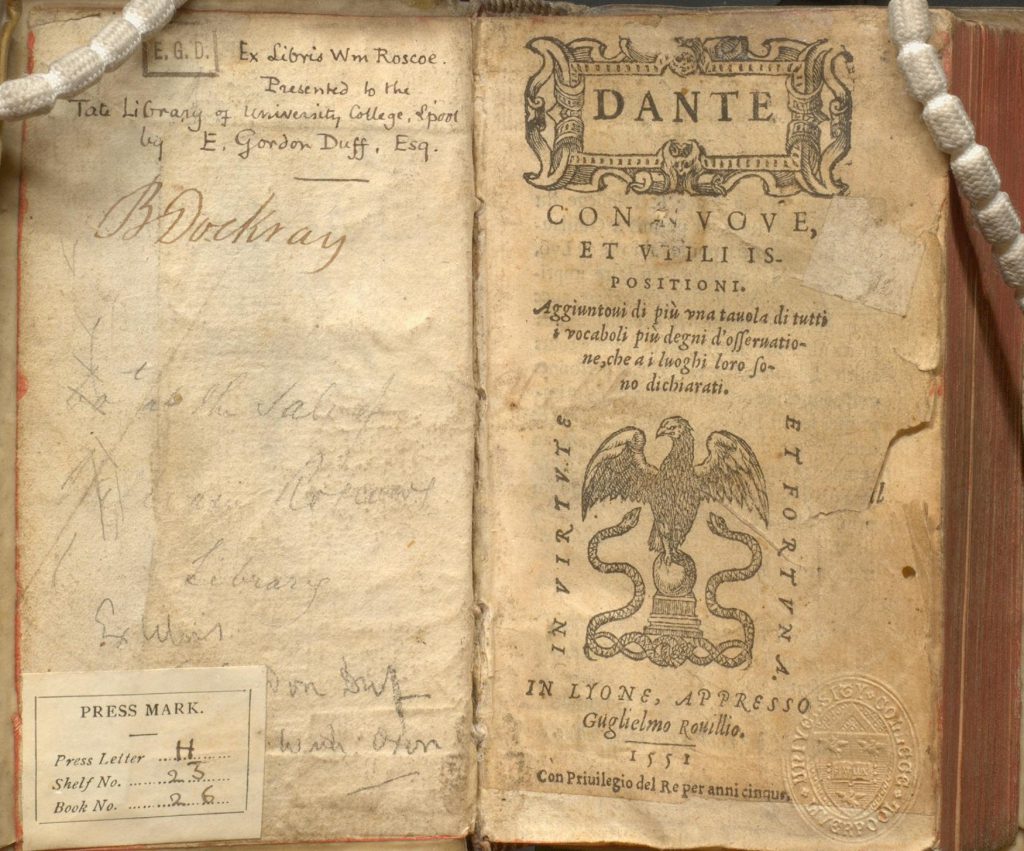 E. G. D.
Ex Libris Wm Roscoe.
Presented to the
Tate Library of University College, L'pool
by E. Gordon Duff, Esq.
B Dockray
at the Sale
Roscoe's
Library
Ex Libris
don Duff
Oxon
PRESS MARK.
Press Letter H
Shelf No. 23
Book No. 26
DANTE
CON NVOVE,
ET VTILI IS-
POSITIONI.
Aggiuntoui di più vna tauola di tutti
i vocaboli più degni d'osseruatio-
ne, che a i luoghi loro so-
no dichiarati.
IN VIRTVTE
ET FORTVNA.
IN LYONE, APPRESSO
Guglielmo Rouillio.
1551
Con Priuilegio del Re per anni cinque,
UNIVERSITY COLLEGE LIVERPOOL